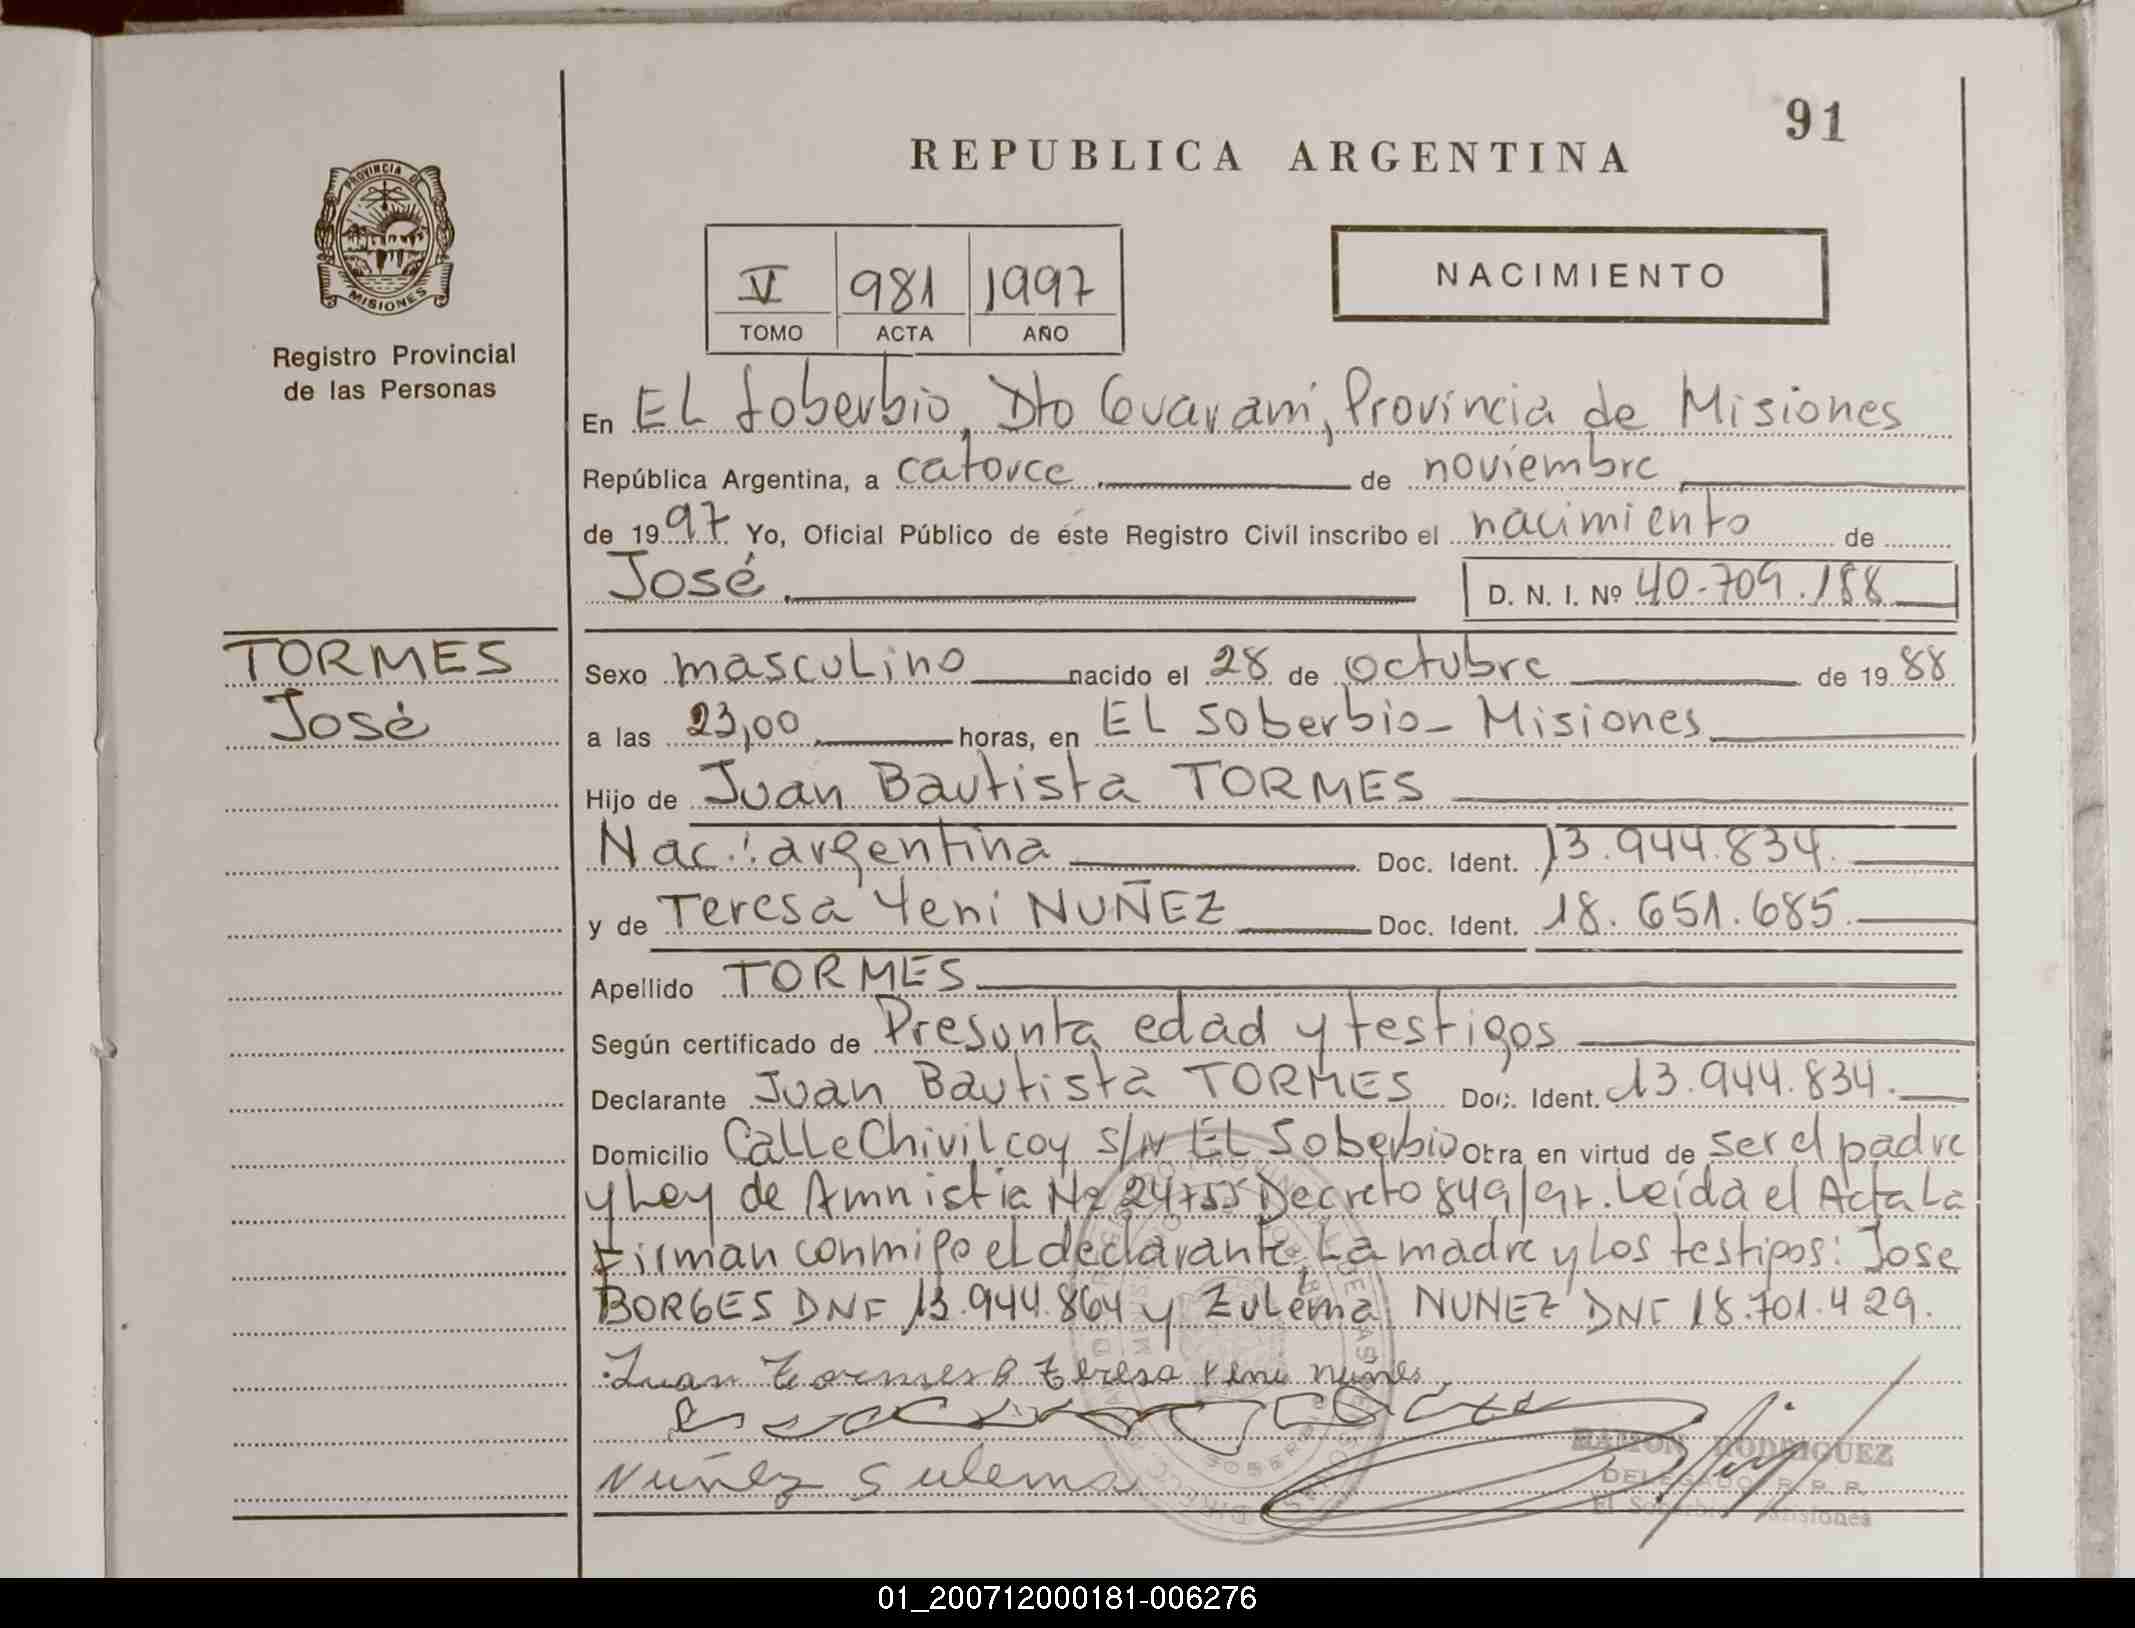 91
REPUBLICA ARGENTINA
PROVINCIA DE
MISIONES
Registro Provincial
de las Personas
NACIMIENTO
V 981 1997
TOMO ACTA AÑO
En EL Soberbio, Dto Guaraní, Provincia de Misiones
República Argentina, a catorce de noviembre
de 1997 Yo, Oficial Público de éste Registro Civil inscribo el nacimiento de
José D. N. I. Nº 40.709.188
TORMES
José
Sexo mascuLino nacido el 28 de octubre de 1988
a las 23,00 horas, en EL Soberbio - Misiones
Hijo de Juan Bautista TORMES
Nac.: argentina Doc. Ident. 13.944.834.
y de Teresa Yeni NUÑEZ Doc. Ident. 18.651.685.
Apellido TORMES
Según certificado de Presunta edad y testigos
Declarante Juan Bautista TORMES Doc. Ident. 13.944.834.
Domicilio CaLLe Chivilcoy s/N EL Soberbio Obra en virtud de ser el padre
y Ley de Amnistia Nº 24755 Decreto 849/97. Leída el Acta La
Firman conmigo el declarante, La madre y Los testigos: Jose
BORGES DNI 13.944.864 y Zulema NUNEZ DNI 18.701.429.
Juan Tormes Teresa Yeni Nuñes
Nuñez Sulema
RAMON RODRIGUEZ
DELEGADO R. P. P.
El Soberbio Misiones
01_200712000181-006276